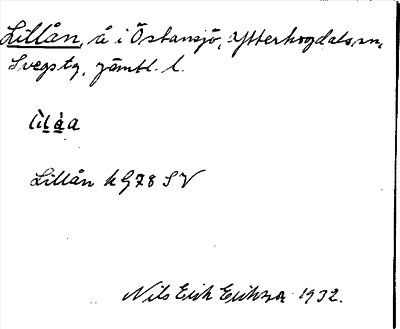 Lillån, å i Östansjö, Ytterhogdals sn,
Svegs tg, Jämtl. l.
Lillån k G78 SV
Nils Erik Eriksson 1932.